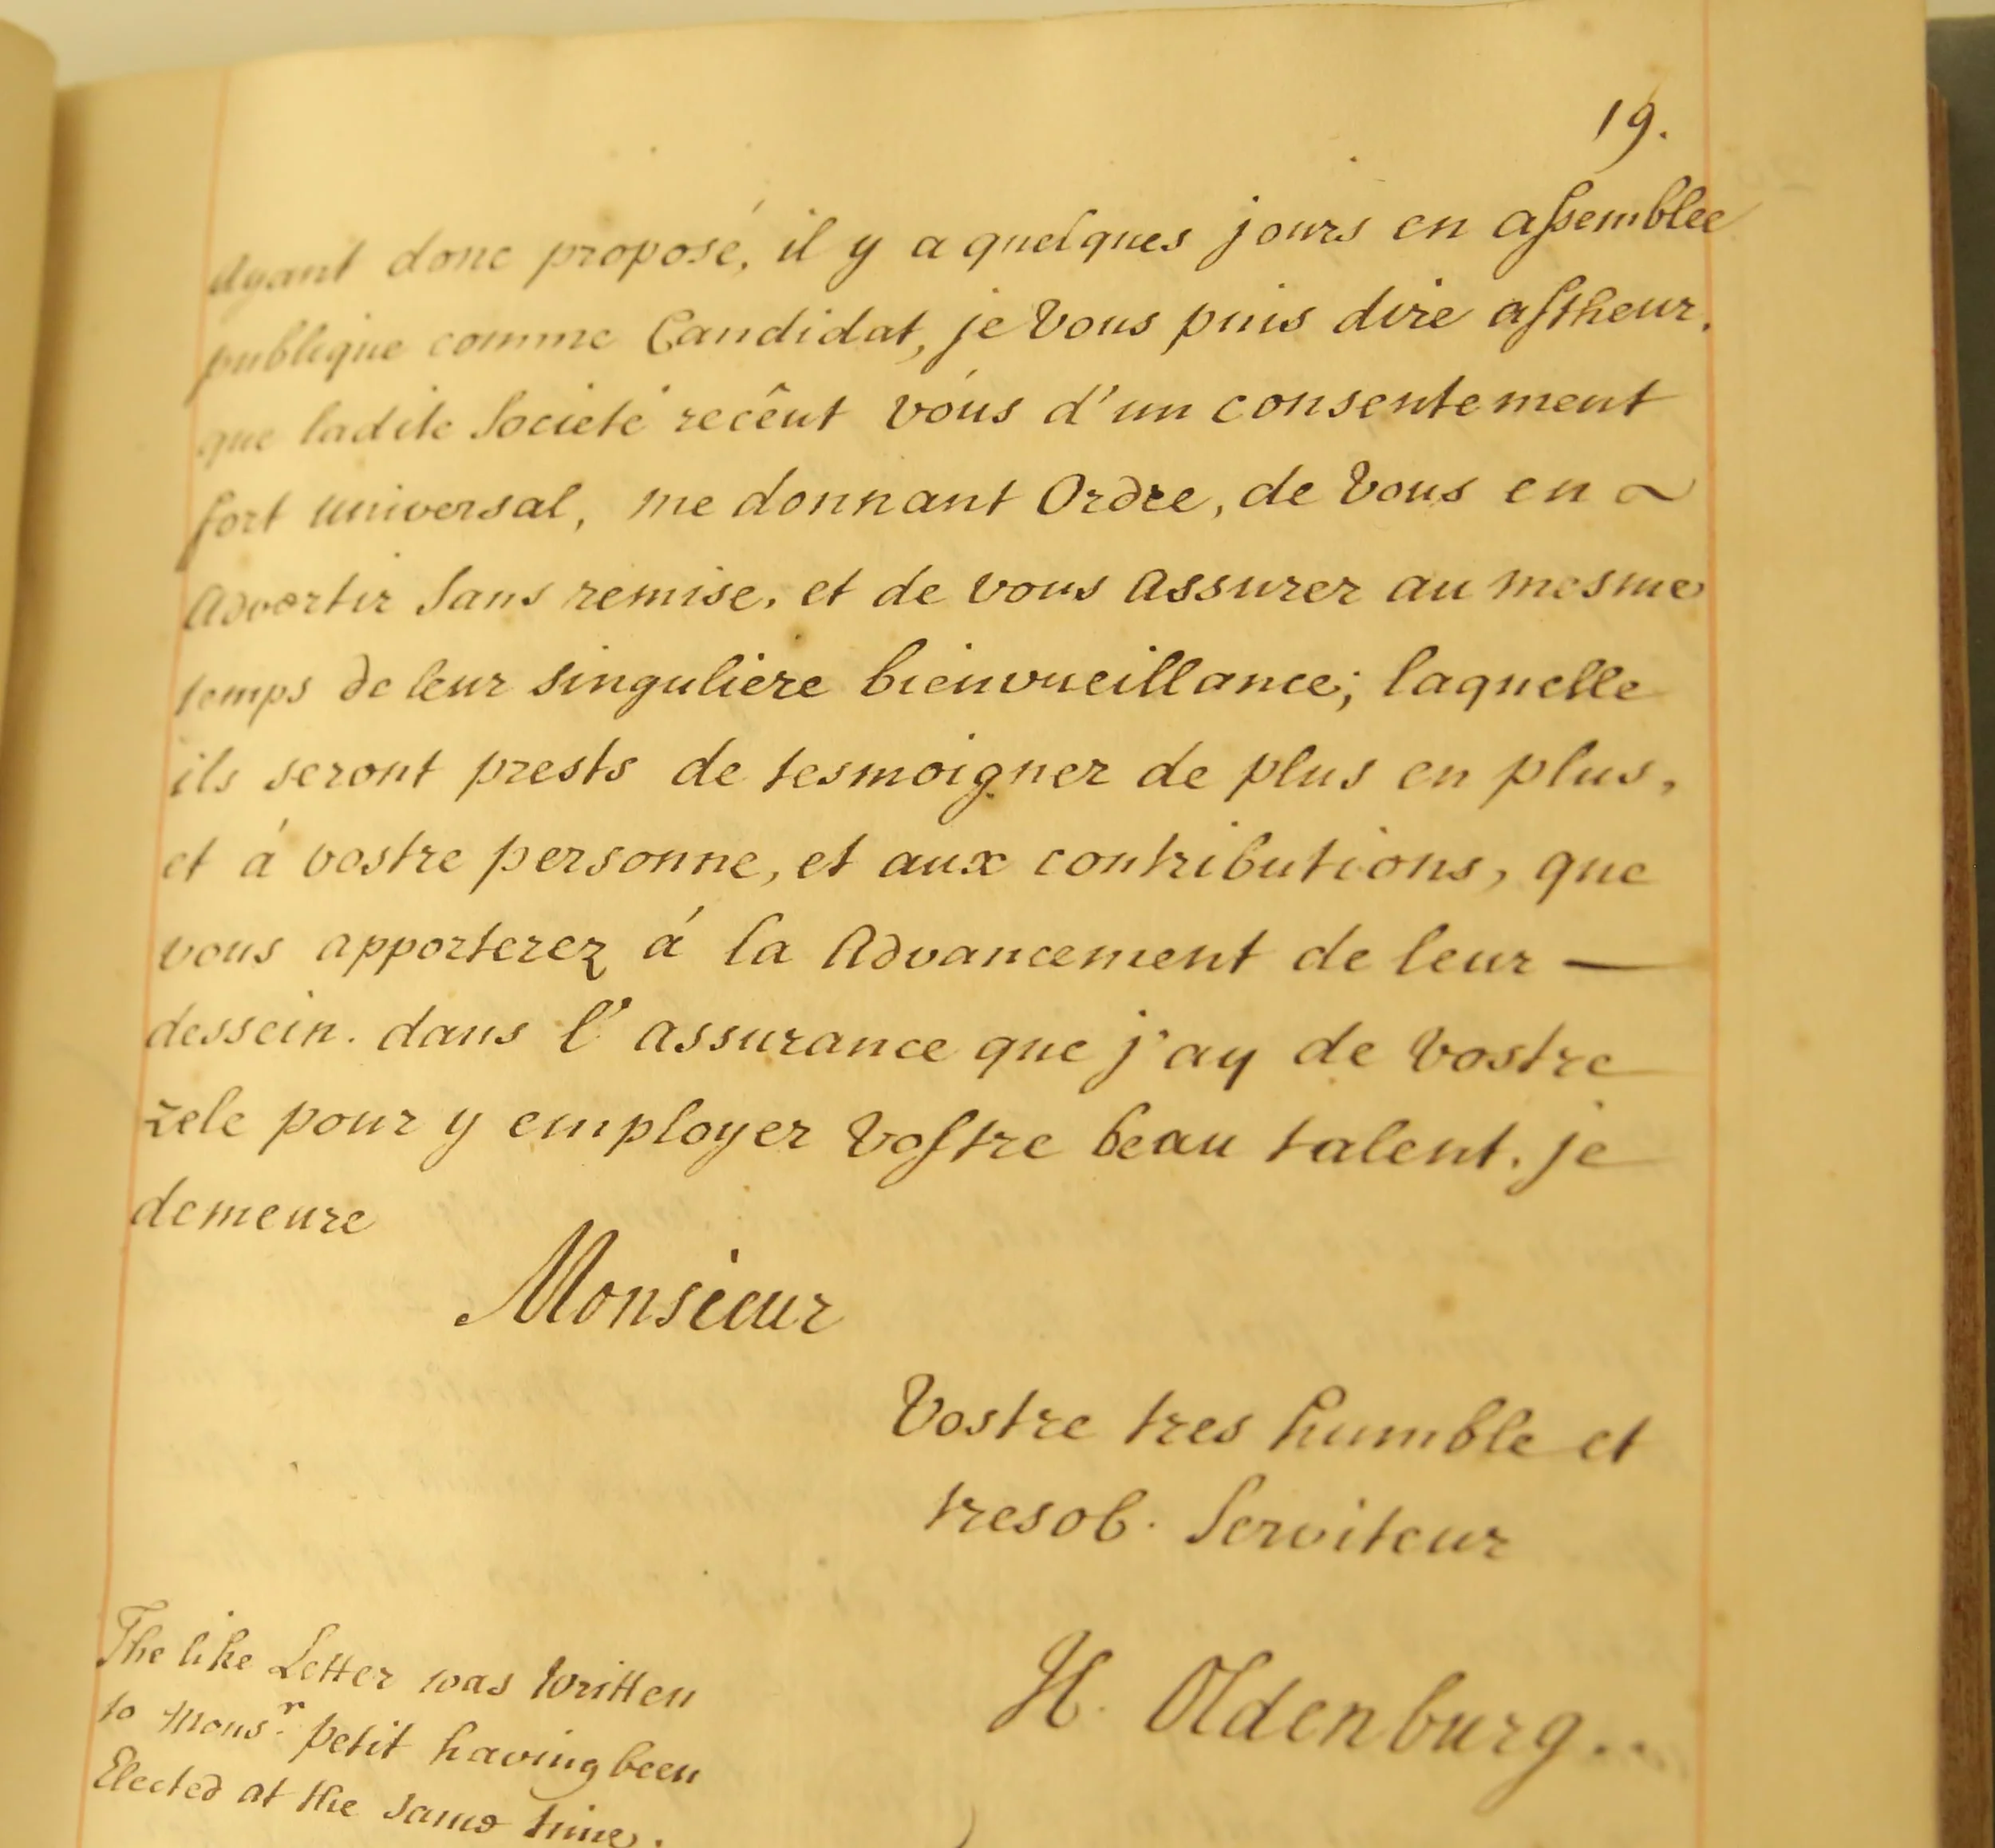 19.
Ayant donc proposé, il y a quelques jours en assemblee
publique comme Candidat, je Vous puis dire astheur,
que ladite Societé recêut vóus d'un consentement
fort universal, me donnant Ordre, de Vous en
Advertir Sans remise, et de vous Assurer au mesme
temps de leur singuliere bienvueillance; laquelle
ils seront prests de tesmoigner de plus en plus,
et á vostre personne, et aux contributions, que
vous apporterez á la Advancement de leur —
dessein. dans l'assurance que j'ay de Vostre
zele pour y employer Vostre beau talent. je
demeure
Monsieur
Vostre tres humble et
tresob. Serviteur
H. Oldenburg..
The like Letter was Written
to Monsr. petit having been
Elected at the same time.